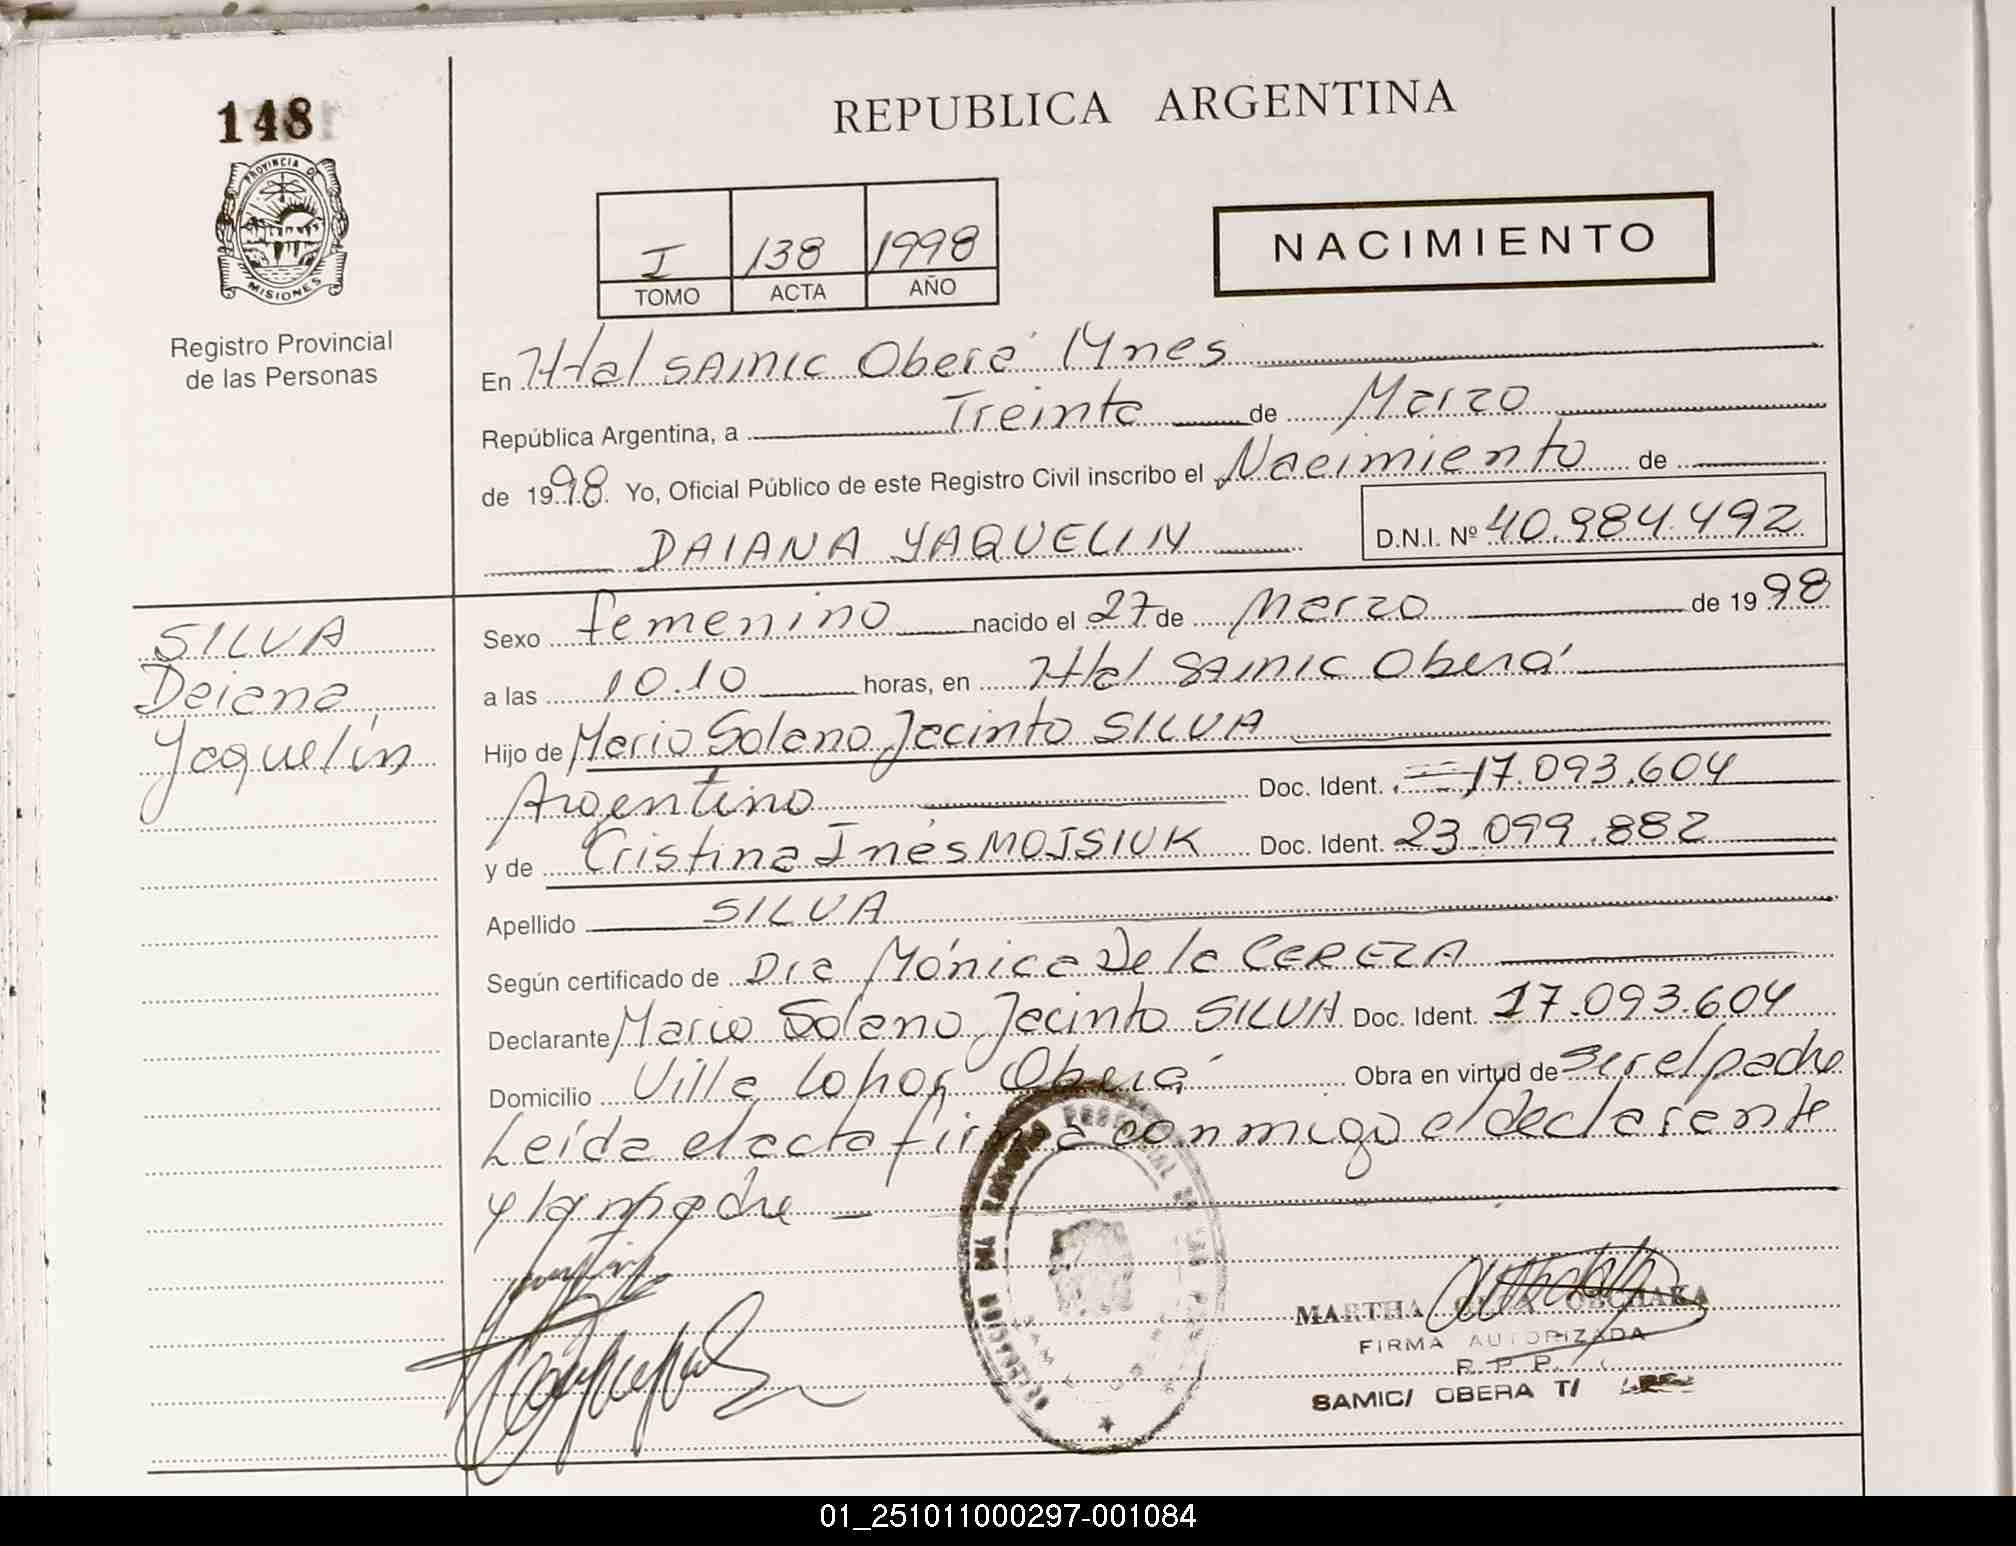 148
PROVINCIA DE
MISIONES
Registro Provincial
de las Personas
REPUBLICA ARGENTINA
I 138 1998
TOMO ACTA AÑO
NACIMIENTO
En Htal SAMIC Oberá Mnes
República Argentina, a Treinta de Marzo
de 1998. Yo, Oficial Público de este Registro Civil inscribo el Nacimiento de
DAIANA YAQUELIN D.N.I. Nº 40.984.492
SILVA
Daiana
Yaquelín
Sexo femenino nacido el 27 de Marzo de 1998
a las 10.10 horas, en Htal SAMIC Oberá
Hijo de Mario Solano Jacinto SILVA
Argentino Doc. Ident. 17.093.604
y de Cristina Inés MOJSIUK Doc. Ident. 23.099.882
Apellido SILVA
Según certificado de Dra Mónica De la CEREZA
Declarante Mario Solano Jacinto SILVA Doc. Ident. 17.093.604
Domicilio Villa Oberá Obra en virtud de ser el padre
Leída el acta firma conmigo el declarante
y la madre
MARTHA
FIRMA AUTORIZADA
R. P. P.
SAMIC/ OBERA T/
01_251011000297-001084